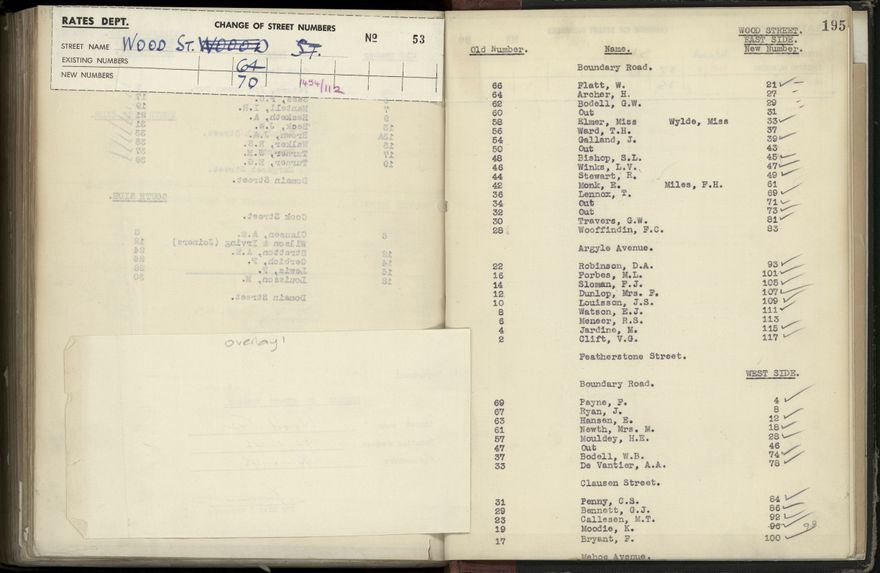 RATES DEPT.
CHANGE OF STREET NUMBERS
STREET NAME WOOD ST. WOOD ST. No 53
EXISTING NUMBERS 64
NEW NUMBERS 70 1454/112
overlay!
195
WOOD STREET.
EAST SIDE.
Old Number. Name. New Number.
Boundary Road.
66 Flatt, W. 21
64 Archer, H. 27
62 Bodell, G.W. 29
60 Out 31
58 Elmer, Miss Wylde, Miss 33
56 Ward, T.H. 37
54 Galland, J. 39
50 Out 43
48 Bishop, S.L. 45
46 Winks, L.V. 47
44 Stewart, R. 49
42 Monk, E. Miles, F.H. 61
36 Lennox, T. 69
34 Out 71
32 Out 73
30 Travers, G.W. 81
28 Wooffindin, F.C. 83
Argyle Avenue.
22 Robinson, D.A. 93
16 Forbes, M.L. 101
14 Sloman, F.J. 105
12 Dunlop, Mrs. F. 107
10 Louisson, J.S. 109
8 Watson, E.J. 111
6 Meneer, R.S. 113
4 Jardine, M. 115
2 Clift, V.G. 117
Featherstone Street.
WEST SIDE.
Boundary Road.
69 Payne, F. 4
67 Ryan, J. 8
63 Hansen, E. 12
61 Newth, Mrs. M. 18
57 Mouldey, H.E. 28
47 Out 46
37 Bodell, W.B. 74
33 De Vantier, A.A. 78
Clausen Street.
31 Penny, C.S. 84
29 Bennett, G.J. 86
23 Callesen, M.T. 92
19 Moodie, K. 96 98
17 Bryant, F. 100
Mahoe Avenue.